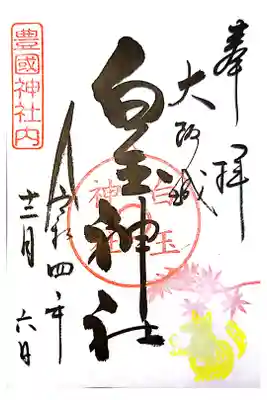 奉拝
大阪城
白玉神社
白玉
神社
令和四年
十二月六日
豊國神社内